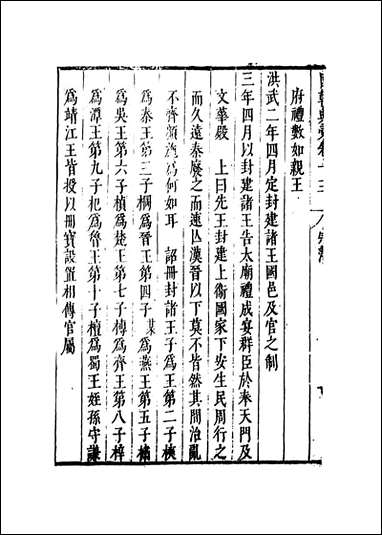 府禮數如親王
洪武二年四月定封建諸王國邑及官之制
三年四月以封建諸王告太廟禮成宴群臣於奉天門及
文華殿 上曰先王封建上衛國家下安生民周行之
而久遠秦廢之而速亾漢晉以下莫不皆然其間治亂
不齊顧施為何如耳 詔冊封諸王子為王第二子樉
為秦王第三子棡為晉王第四子 為燕王第五子橚
為吳王第六子楨為楚王第七子榑為齊王第八子梓
為潭王第九子杞為魯王第十子檀為蜀王姪孫守謙
為靖江王皆授以冊寶設置相傳官屬